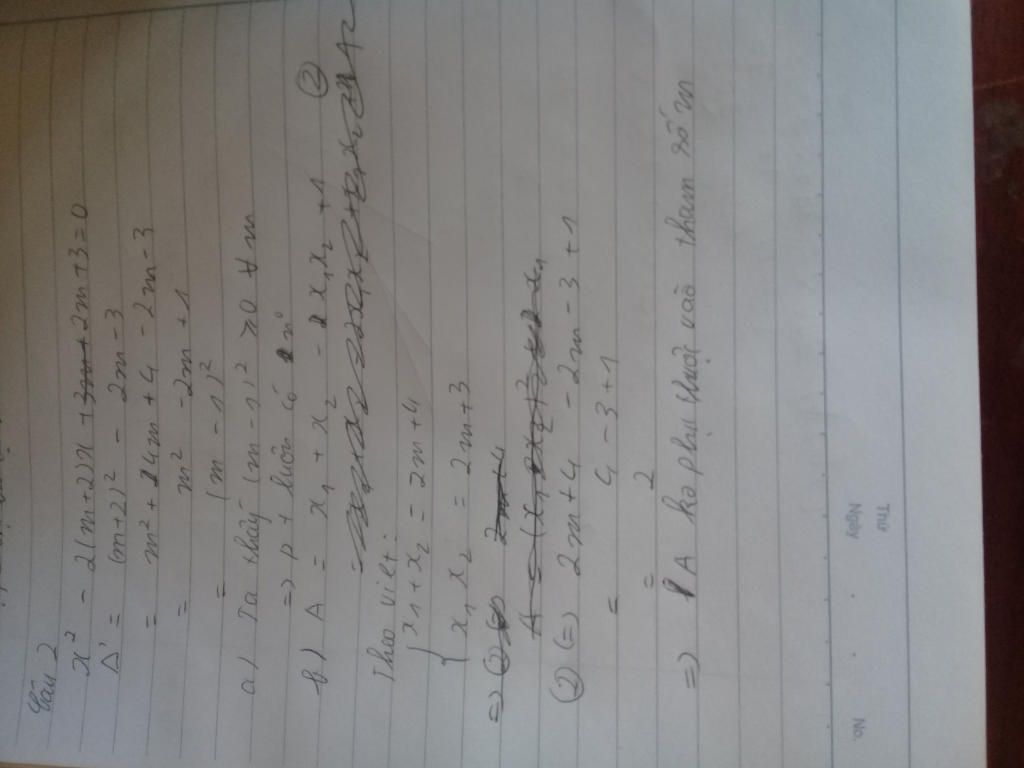 Câu 2
x² - 2(m+2)x + 2m + 3 = 0
Δ' = (m+2)² - 2m - 3
= m² + 4m + 4 - 2m - 3
= m² - 2m + 1
= (m - 1)²
a) Ta thấy (m - 1)² ≥ 0 ∀ m
=> P + luôn có 2 n⁰
b) A = x₁ + x₂ - x₁x₂ + 1 (2)
Theo Viet:
{ x₁ + x₂ = 2m + 4
{ x₁ x₂ = 2m + 3
=> (2)
(2) (=) 2m + 4 - 2m - 3 + 1
= 4 - 3 + 1
= 2
=> A ko phụ thuộc vào tham số m
Thứ
Ngày . . No.